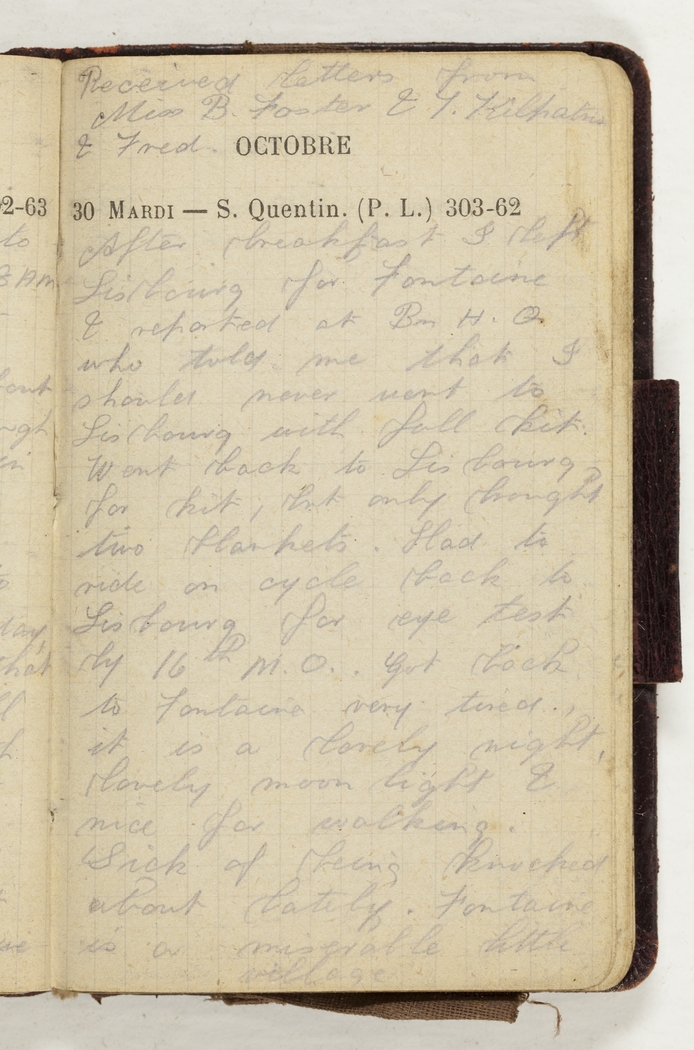 Received letters from
Miss B. Foster & T. Kilpatric
& Fred. OCTOBRE
02-63 30 MARDI — S. Quentin. (P. L.) 303-62
to After breakfast I left
8 AM Lisbourg for Fontaine
& reported at Bn H. Q.
who told me that I
should never went to
Lisbourg with full kit.
Went back to Lisbourg
for kit, but only brought
two blankets. Had to
ride on cycle back to
Lisbourg for eye test
by 16th M.O.. Got back
to Fontaine very tired.,
it is a lovely night,
lovely moon light &
nice for walking.
Sick of being knocked
about lately. Fontaine
is a miserable little
village